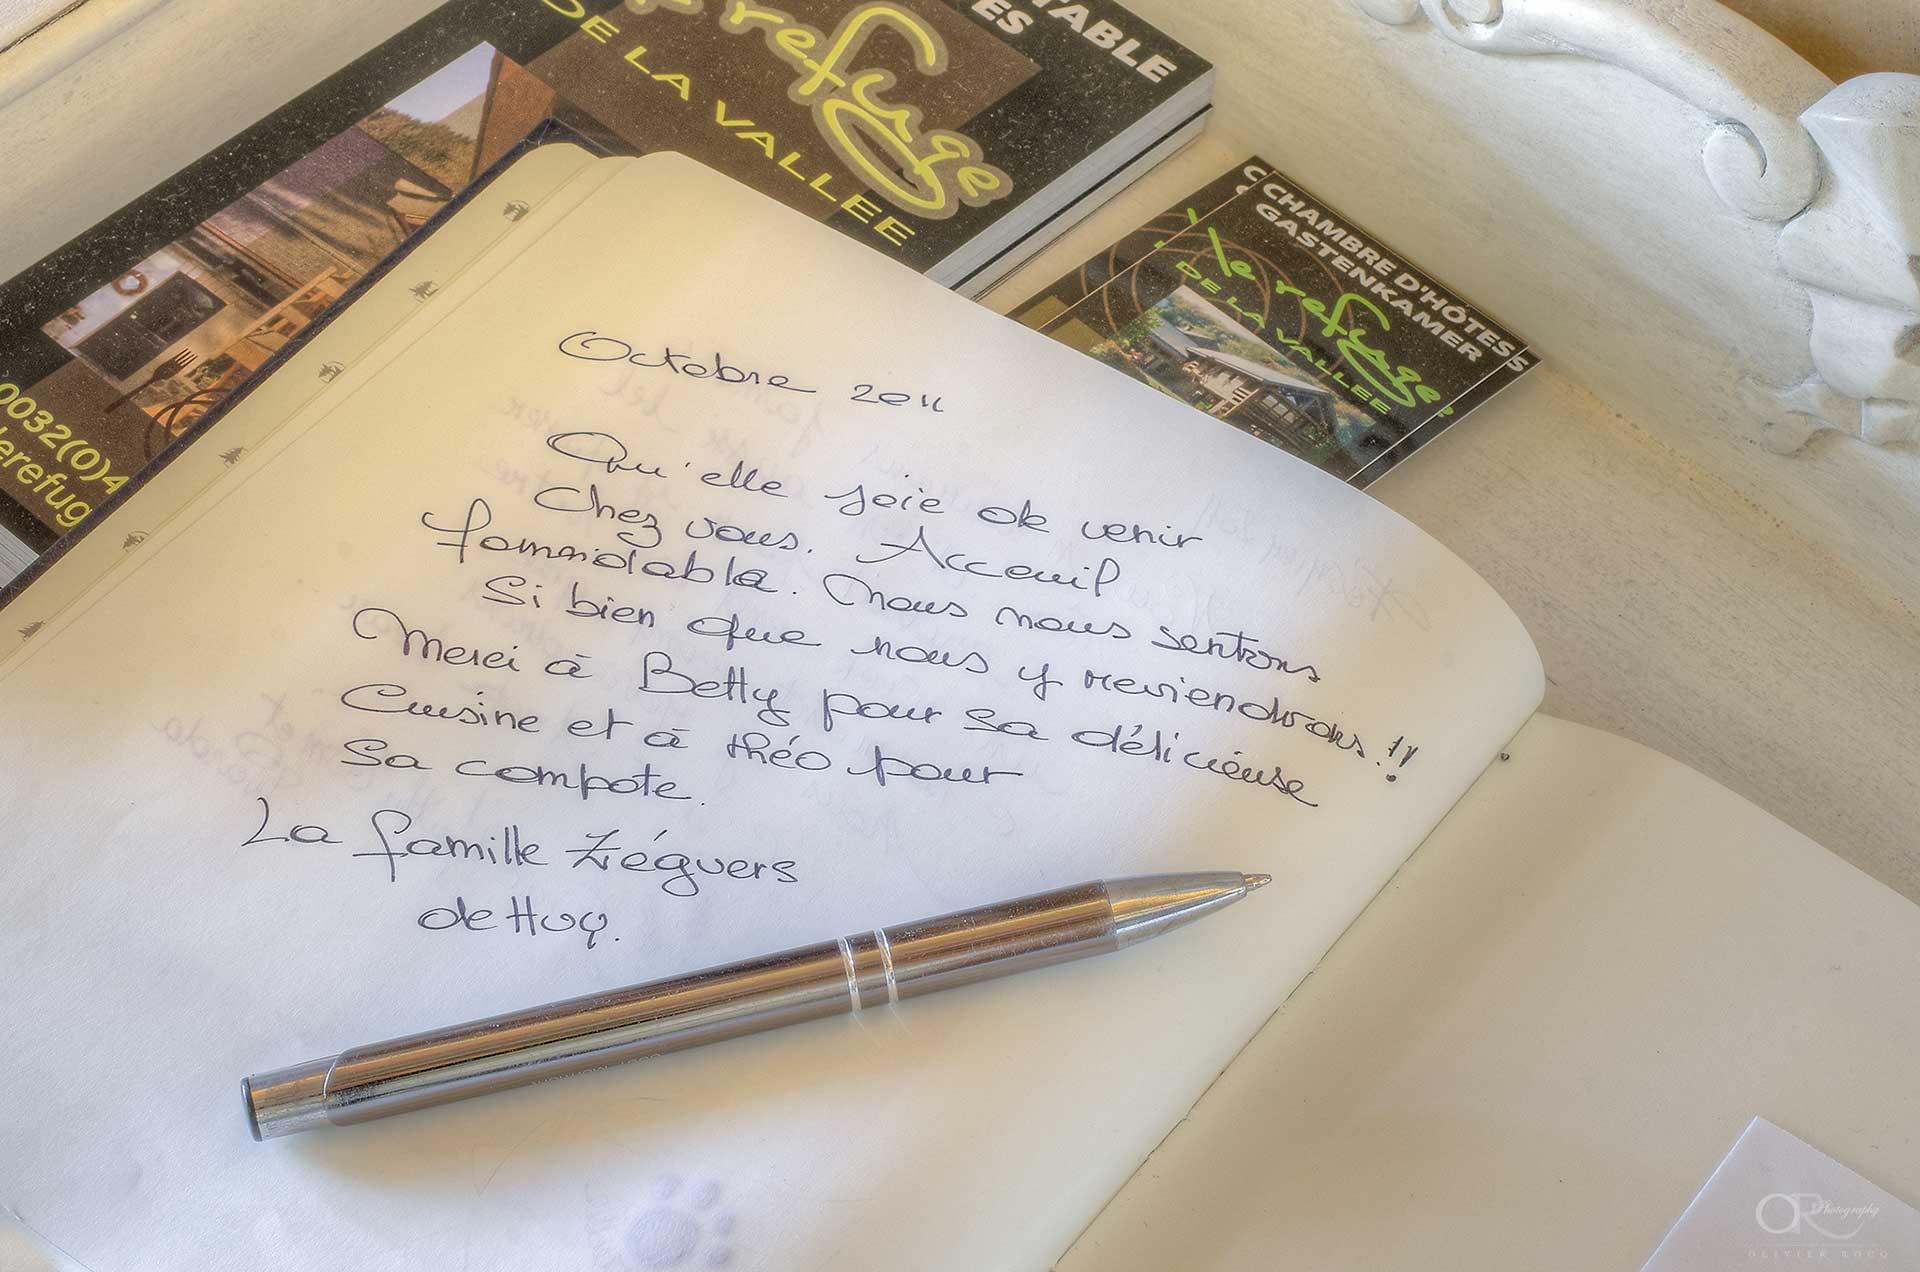 TABLE
ES
refuge
DE LA VALLEE
0032(0)4
lerefug
CHAMBRE D'HÔTES
GASTENKAMER
le refuge
DE LA VALLEE
Octobre 2011
Qu'elle joie de venir
Chez vous. Acceuil
formidable. Nous nous sentons
Si bien que nous y reviendrons!!
Merci à Betty pour sa délicieuse
Cuisine et à théo pour
Sa compote.
La famille Ziéguers
de Huy.
OR Photography
OLIVIER ROCQ